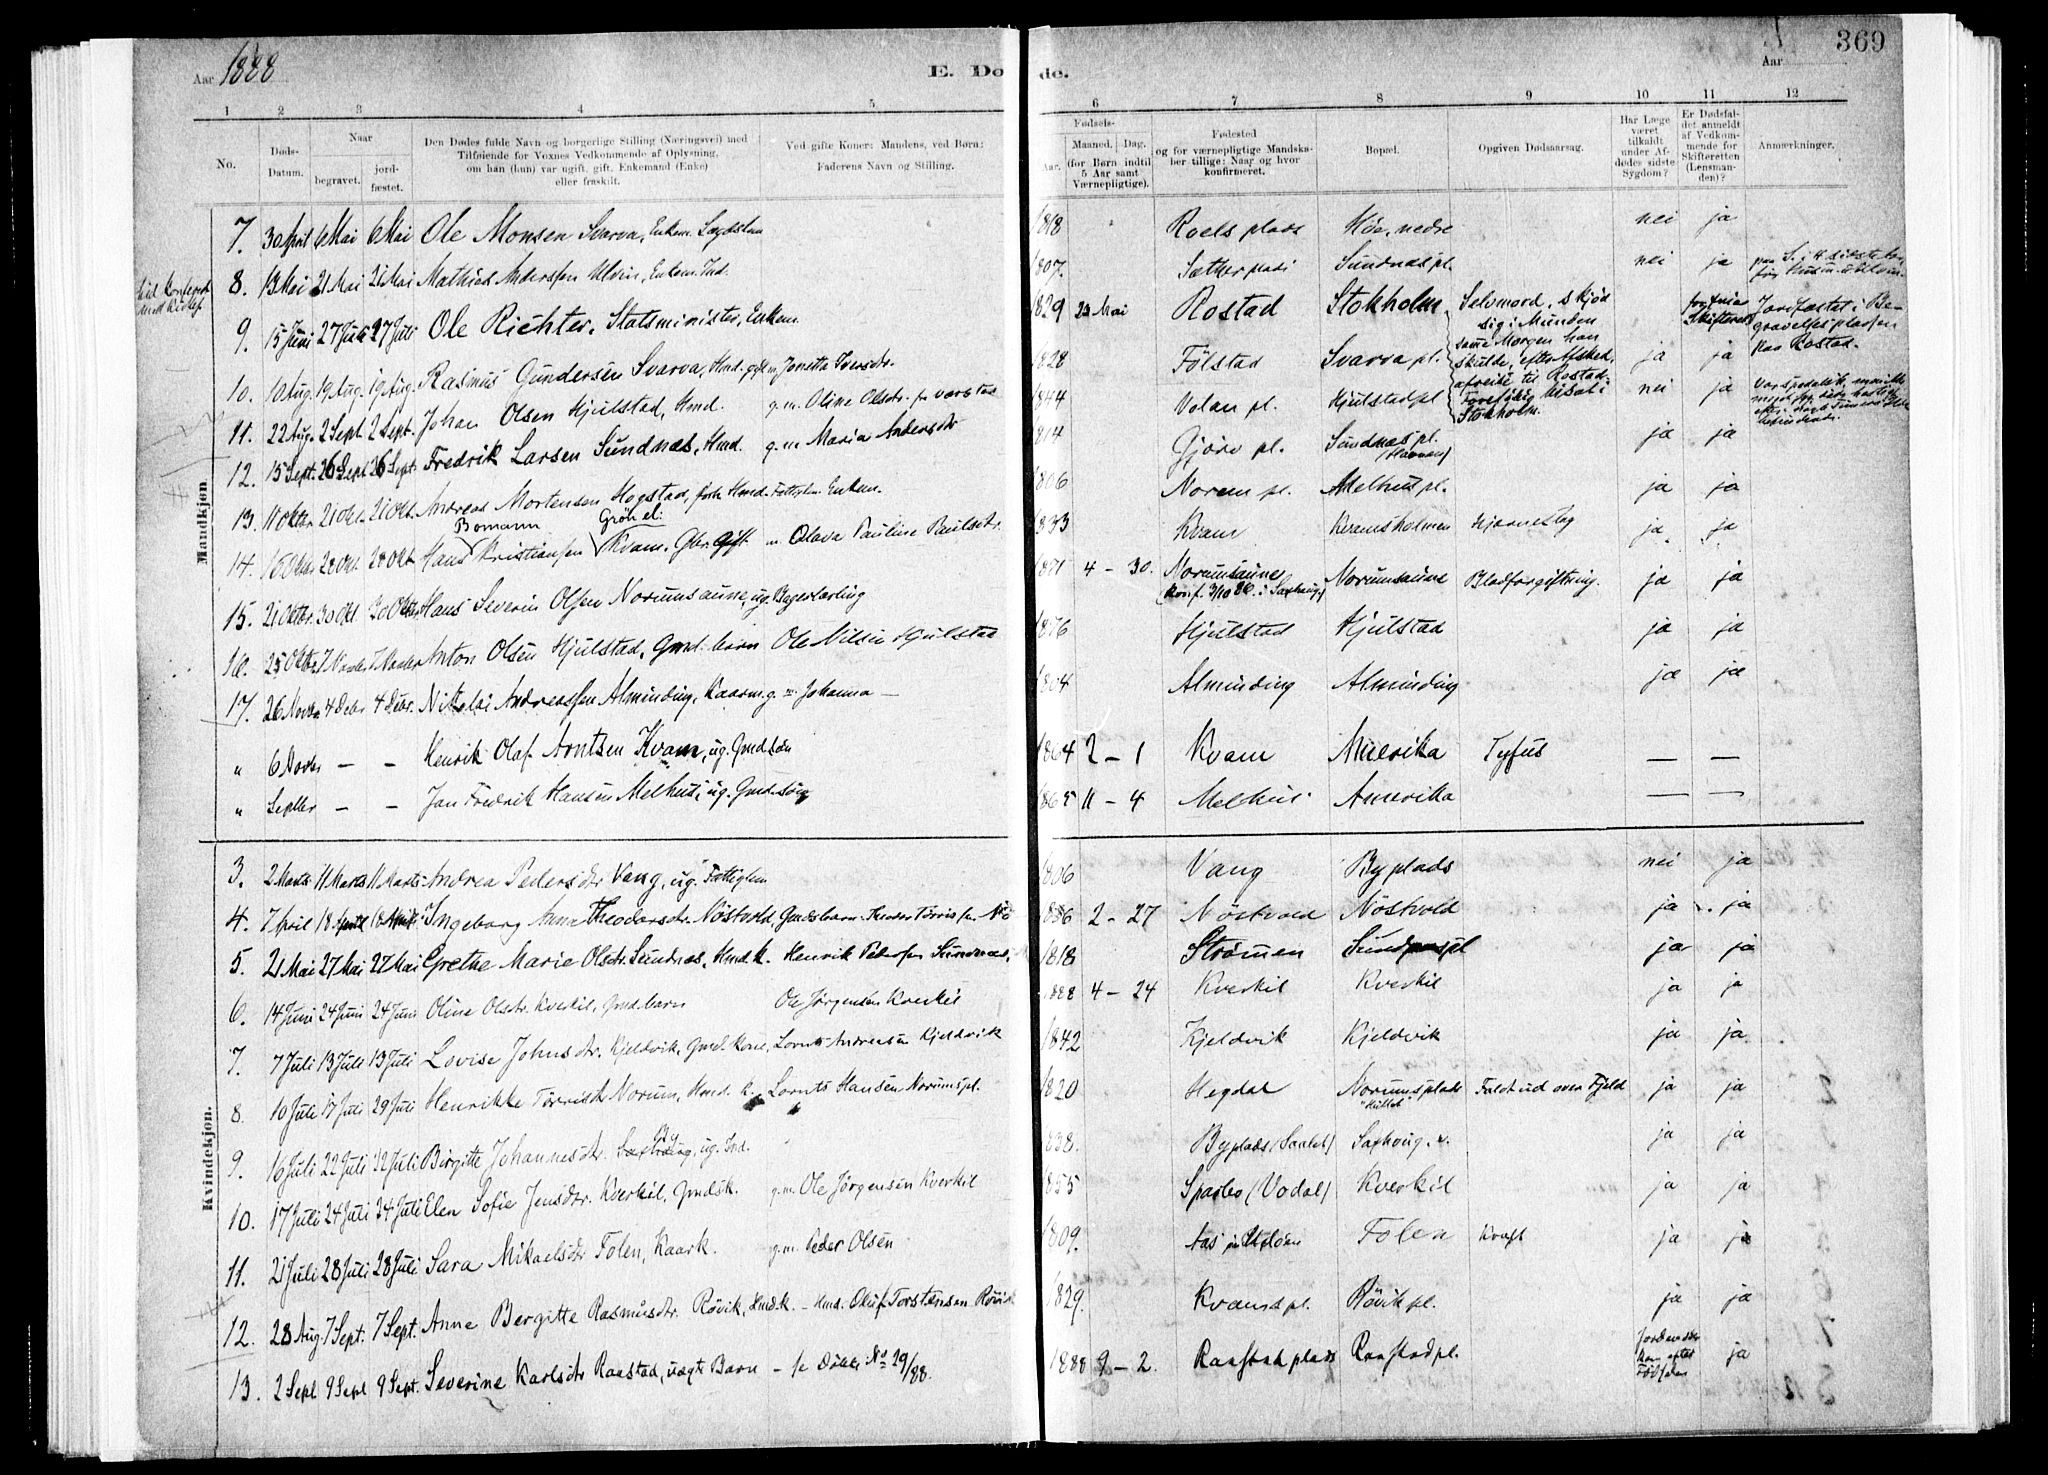 Aar 1888
E. Dø de.
Aar
369
1 2 3 4 5 6 7 8 9 10 11 12
No.
Døds-Datum.
Naar
begravet.
jord-fæstet.
Den Dødes fulde Navn og borgerlige Stilling (Næringsvei) med
Tilføiende for Voxnes Vedkommende af Oplysning,
om han (hun) var ugift, gift, Enkemand (Enke)
eller fraskilt.
Ved gifte Koner: Mandens, ved Børn:
Faderens Navn og Stilling.
Fødsels-
Aar. Maaned. Dag.
(for Børn indtil
5 Aar samt
Værnepligtige).
Fødested
og for værnepligtige Mandska-
ber tillige: Naar og hvor
konfirmeret.
Bopæl.
Opgiven Dødsaarsag.
Har Læge
været
tilkaldt
under Af-
dødes sidste
Sygdom?
Er Dødsfal-
det anmeldt
af Vedkom-
mende for
Skifteretten
(Lensman-
den)?
Anmærkninger.
Mandkjøn.
7. 30 April 6 Mai 6 Mai Ole Monsen Svarva, Enkem. Lægdslem 1818 Roels plads Høa, nedre nei ja
8. 13 Mai 21 Mai 21 Mai Mathias Anderssen Ulven, Enkem. Ind. 1807. Sætherplads Sundnæs pl. nei ja
9. 15 Juni 27 Juli 27 Juli Ole Richter, Statsminister, Enkem. 1829 23 Mai Rostad Stokholm Selvmord, skjød
sig i Munden
samme Morgen han
skulde, efter Afsked,
afreise til Rostad.
Stokholm.
Jordfæstet i Be-
gravelsespladsen
paa Rostad.
10. 10 Aug. 19 Aug. 19 Aug. Rasmus Gundersen Svarva, Hmd. gift m Jonetta Iversdr. 1828 Følstad Svarva pl. ja ja
11. 22 Aug. 2 Sept. 2 Sept. Johan Olsen Hjulstad, Hmd. g.m. Oline Olsdr. 1844 Volan pl. Hjulstad pl nei ja
12. 15 Sept. 26 Sept 26 Sept. Fredrik Larsen Sundnæs, Hmd. g.m Maria Andersdr 1814 Gjørv pl. Sundnæs pl. ja ja
13. 11 Oktbr 21 Okt. 21 Okt. Andreas Mortensen Hogstad, forh. Hmd. Fattiglem. Enkem. 1806 Norem pl. Melhus pl. ja ja
Bomann Grön el:
14. 15 Oktbr 20 Okt. 20 Okt. Hans Kristiansen Kvam, Gbr. Gift m Olava Pauline Paulsdr. 1833 Kvam Kvamsholmen Hjerneslag ja ja
15. 21 Oktbr. 30 Okt 30 Oktbr Hans Severin Olsen Norumsaune, ug. Bagerlærling 1871 4 - 30. Norumsaune Norumsaune Blodforgiftning. ja ja
16. 25 Oktbr 7 Novbr 7 Novbr Anton Olsen Hjulstad, Gmd. barn Ole Nilsen Hjulstad 1876 Hjulstad Hjulstad ja ja
17. 26 Novbr. 4 Debr 4 Debr. Nikolai Andreassen Alminding, Kaarm. g. m. Johanna — 1804 Alminding Alminding ja ja
" 6 Novbr — — Henrik Olaf Arntsen Kvam, ug. Gmdsøn 1864 2 - 1 Kvam Amerika Tyfus — —
" Septbr — — Jan Fredrik Hansen Melhus, ug. Gmdsøn 1865 11 - 4 Melhus Amerika — —
Kvindekjøn.
3. 2 Marts 11 Marts 11 Marts Andrea Pedersdr Vang, ug. Fattiglem 1806 Vang Byplads nei ja
4. 7 April 18 April 18 April Ingeborg Anna Theodorsdr. Nöstvold, Gmdsbarn 1886 2 - 27 Nöstvold Nöstvold ja ja
5. 21 Mai 27 Mai 27 Mai Grethe Marie Olsdr. Sundnæs, Hmd.k. Henrik Pedersen Sundnæs, 1818 Strömen Sundnæspl ja ja
6. 14 Juni 24 Juni 24 Juni Oline Olsdr. Kverkil, Gmd.barn Ole Jørgensen Kverkil 1888 4 - 24 Kverkil Kverkil ja ja
7. 7 Juli 13 Juli 13 Juli Lovise Johnsdtr. Kjeldvik, Gmd. kone, Lornts Andreasen Kjeldvik 1842 Kjeldvik Kjeldvik ja ja
8. 10 Juli 17 Juli 29 Juli Henrikke Torrisdr Norum, Hmd. k. Lornts Hansen Norumspl. 1820 Hegdal Norumsplads Faldt ud over Fjeld ja ja
9. 16 Juli 22 Juli 22 Juli Birgitte Johannesdr. By, ug. Ind. 1838. Byplads (Saalet) Saxhaug. v. ja ja
10. 17 Juli 24 Juli 24 Juli Elen Sofie Jensdr. Kverkil, Gmdsk. g.m. Ole Jörgensen Kverkil 1855 Sparbo (Vodal) Kverkil ja ja
11. 21 Juli 28 Juli 28 Juli Sara Mikaelsdr Folen, Kaark. g.m. Peder Olsen 1809. Folen Kræft ja ja
12. 28 Aug. 7 Sept. 7 Sept. Anne Bergitte Rasmusdr. Rövik, Hmd.k. — Hmd. Oluf Torstensen Rövik 1829. Kvamspl. Rövik pl. ja ja
13. 2 Sept 9 Sept 9 Sept. Severine Karlsdr Raastad, uægt Barn — No 29/88. 1888 9 - 2. Raastad plads Raastad pl. Jordemoder
kom efter
Fødselen ja